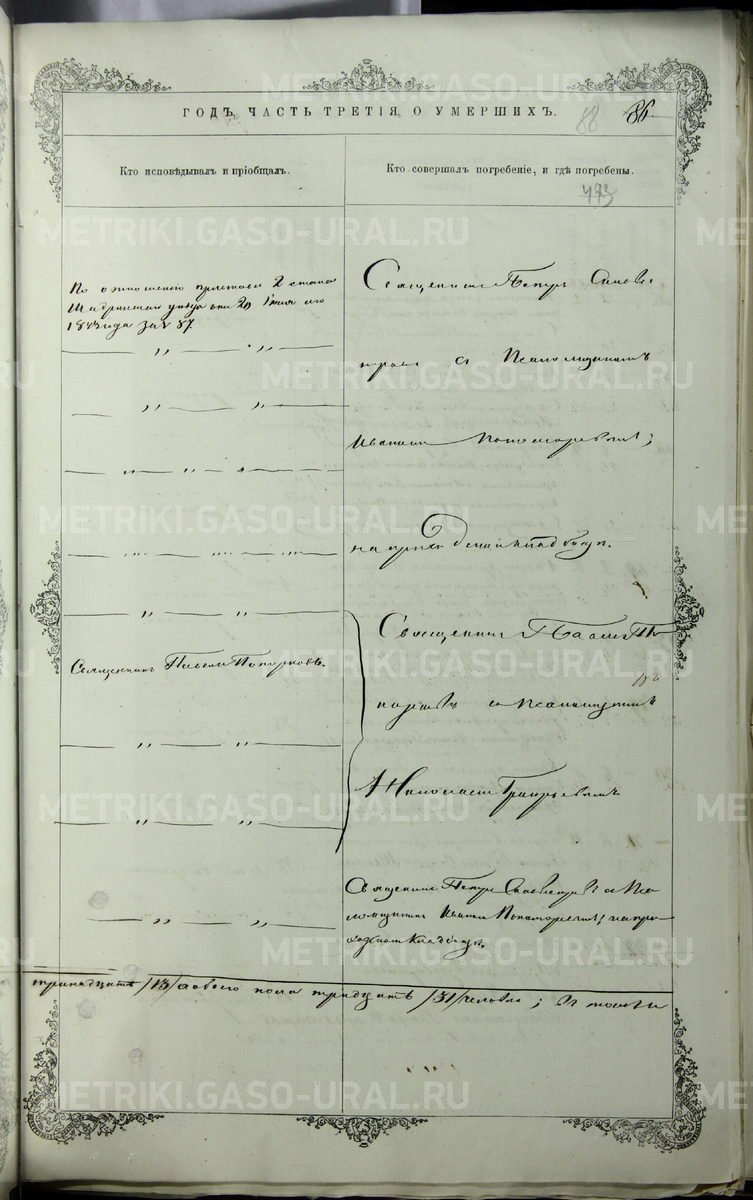 ГОДЪ, ЧАСТЬ ТРЕТІЯ, О УМЕРШИХЪ.
88 86.
Кто исповѣдывалъ и пріобщалъ.
Кто совершалъ погребеніе, и гдѣ погребены.
493
По отношенію пристава 2 стана
Шадринскаго уѣзда отъ 20 Іюня
1883 года за № 87
Священникъ Павелъ Топорковъ.
Священникъ Петръ
съ Псаломщикомъ
Иваномъ Пономаревымъ;
на приходскомъ кладбищѣ.
Священникъ Павелъ То
порковъ съ Псаломщикомъ
Николаемъ Григорьевымъ
Священникъ Петръ съ Пса
ломщикомъ Иваномъ Пономаревымъ; на при
ходскомъ кладбищѣ.
тринадцать /13/ а обоего пола тридцать /31/ человѣкъ; въ томъ
METRIKI.GASO-URAL.RU